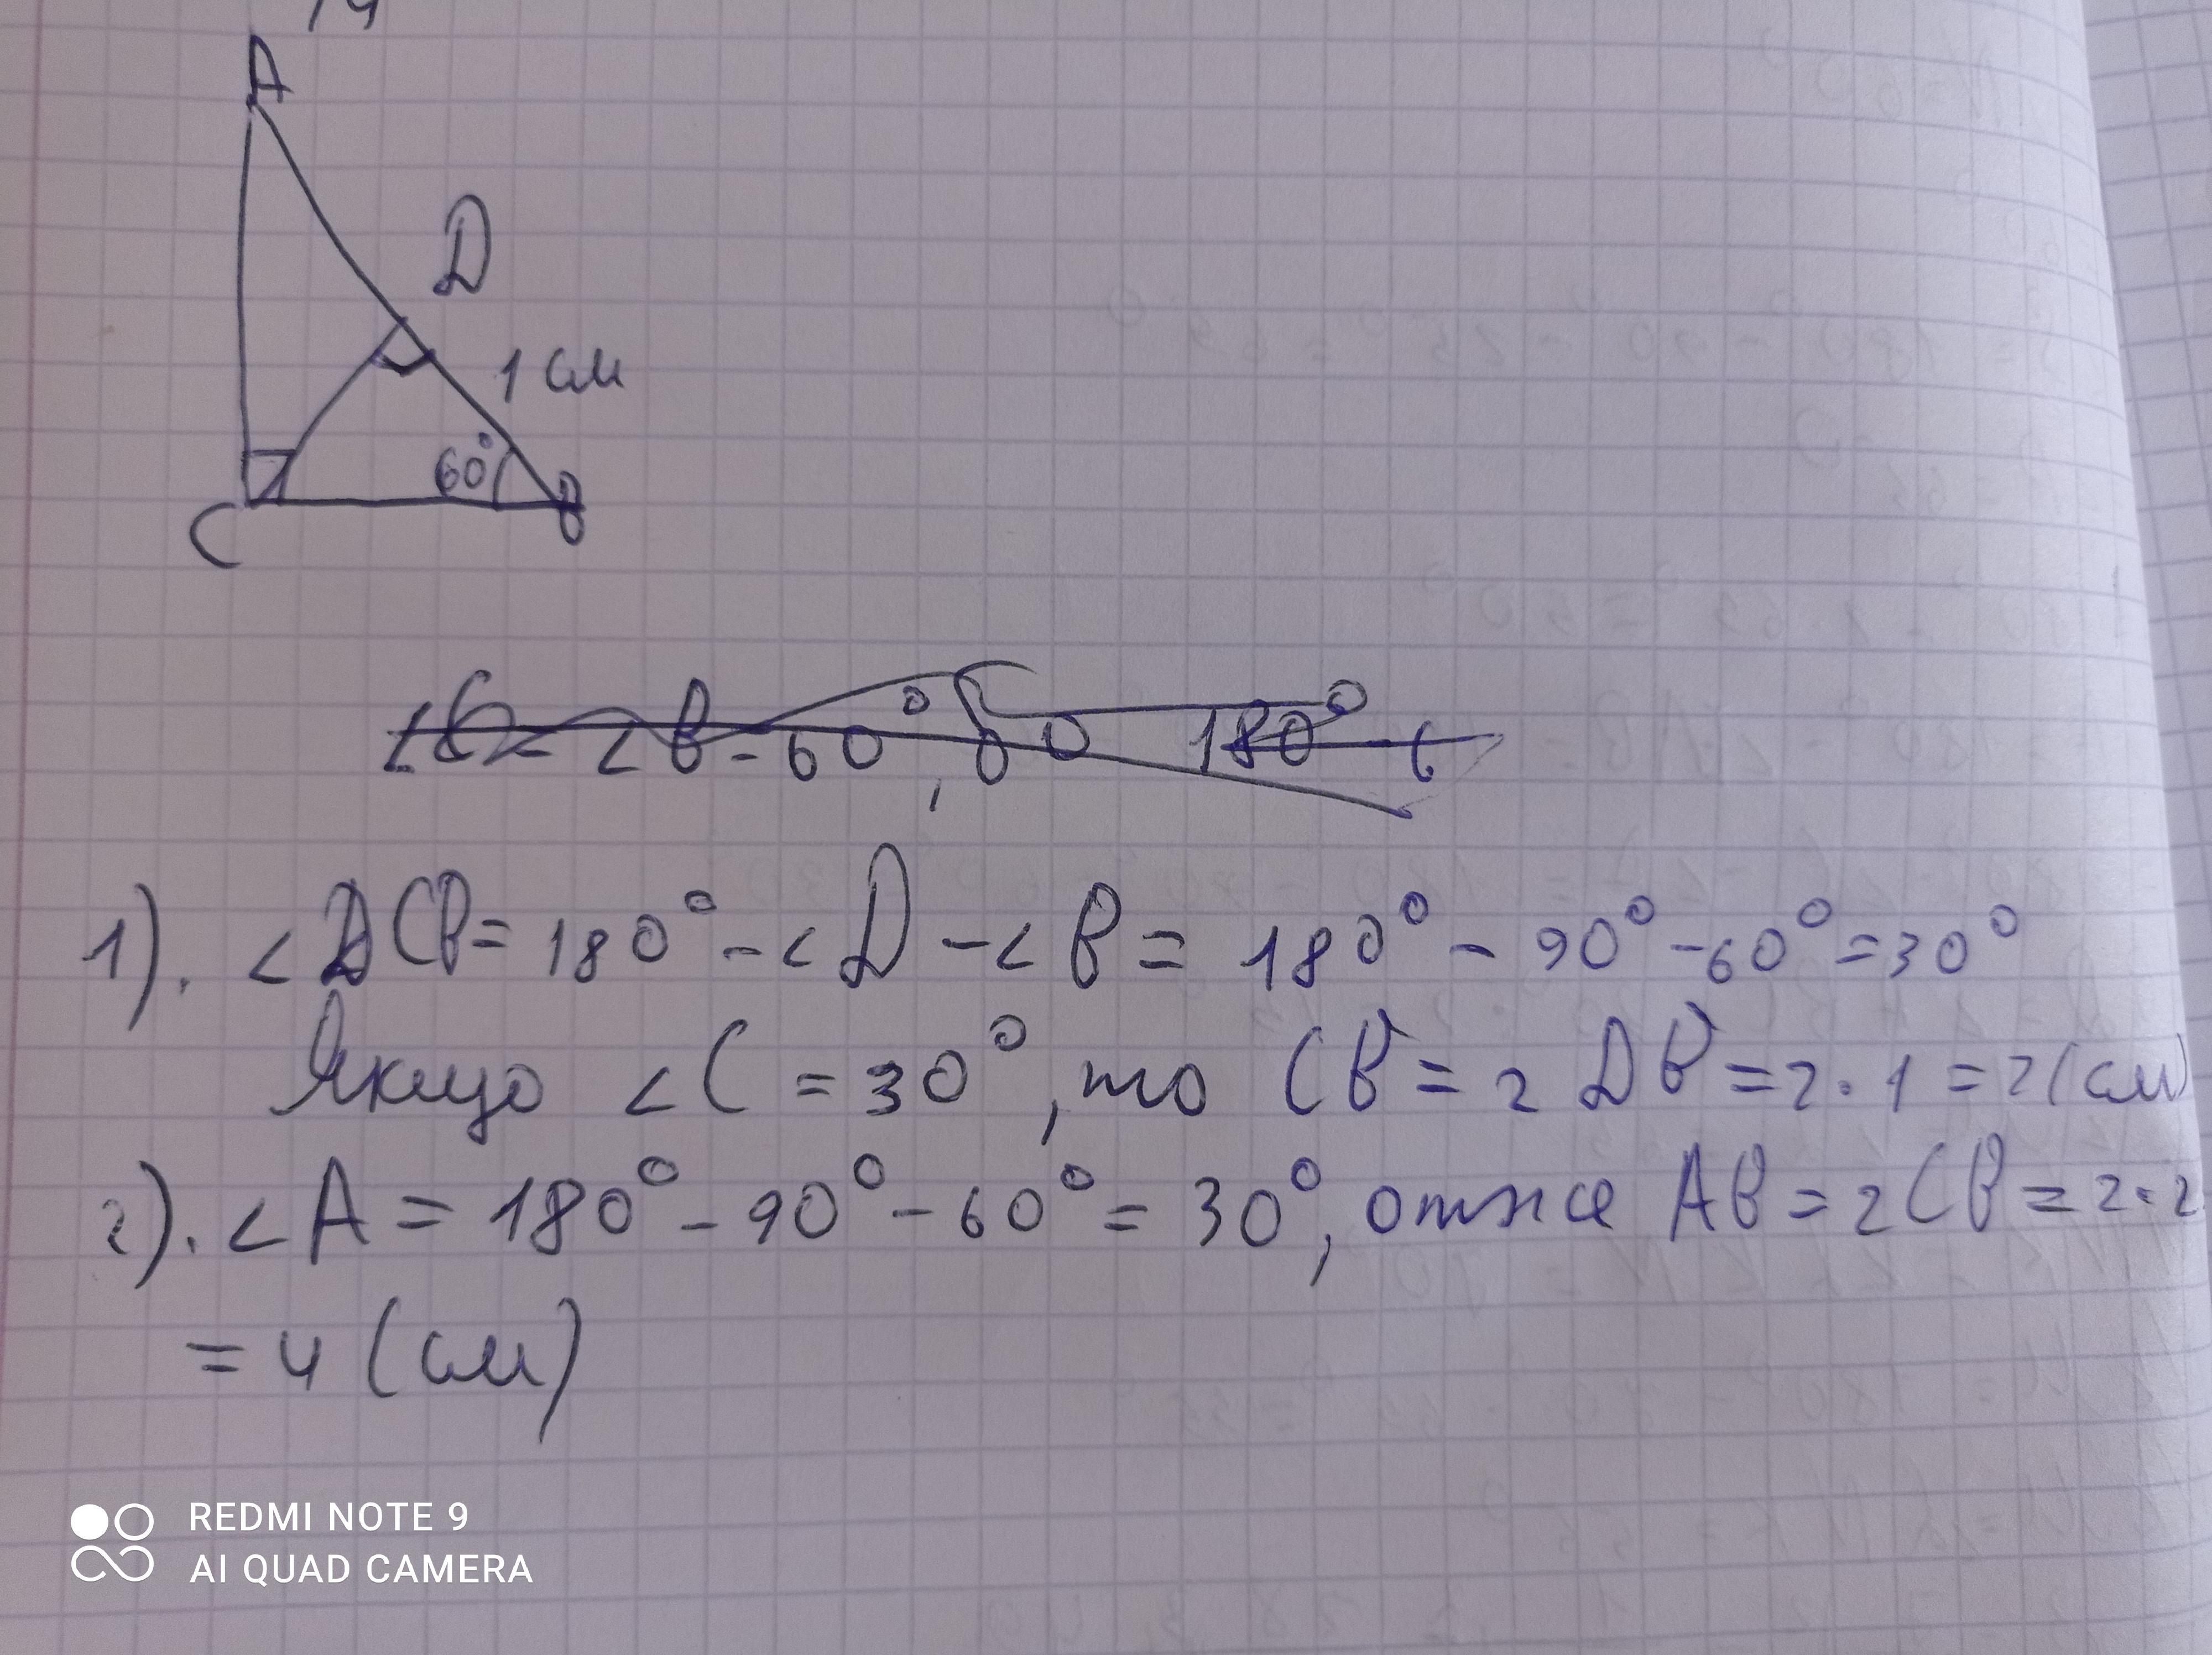 14
A
D
1 см
60°
C
B
∠B = 60°, 180°
1). ∠DCB = 180° - ∠D - ∠B = 180° - 90° - 60° = 30°
Якщо ∠C = 30°, то CB = 2 DB = 2 · 1 = 2 (см)
2). ∠A = 180° - 90° - 60° = 30°, отже AB = 2CB = 2·2
= 4 (см)
REDMI NOTE 9
AI QUAD CAMERA